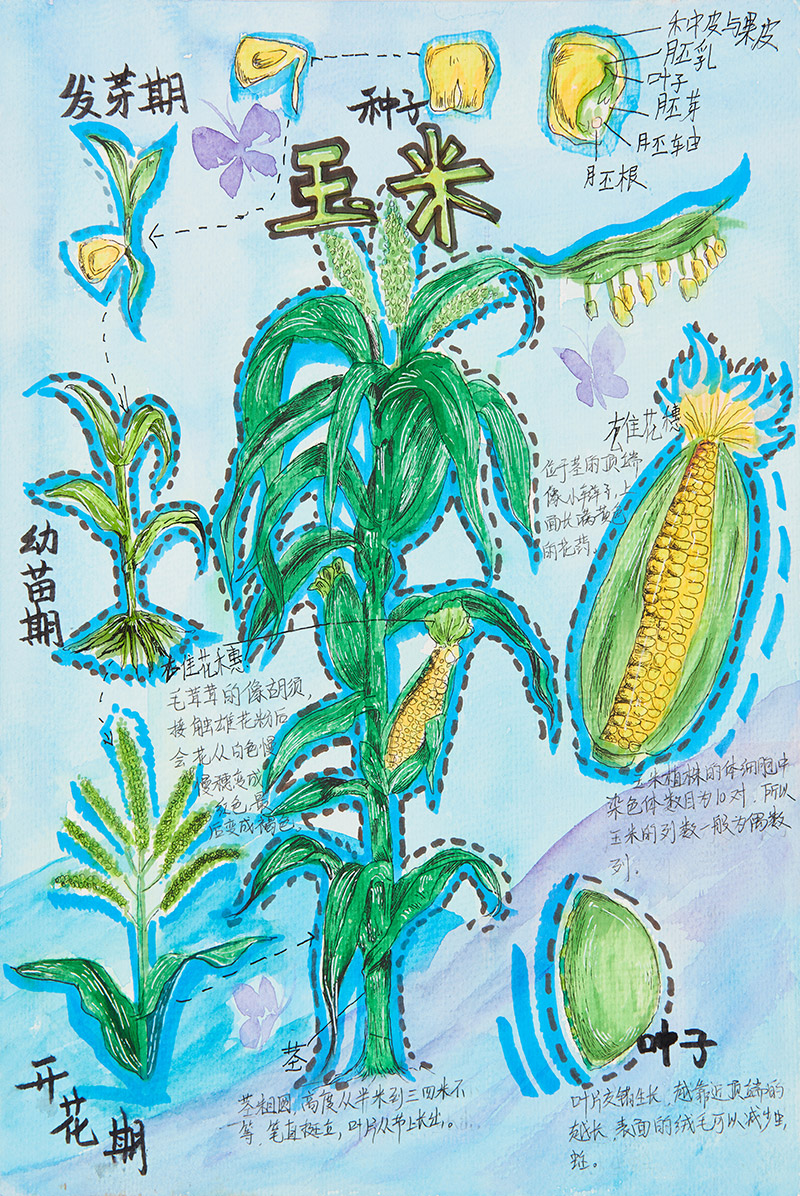 发芽期
种子
种皮与果皮
胚乳
叶子
胚芽
胚轴
胚根
玉米
雄花穗
位于茎的顶端
像小辫子,上
面长满黄色
的花药。
幼苗期
雌花穗
毛茸茸的像胡须,
接触雄花粉后
会花从白色慢
慢穗变成
红色,最
后变成褐色。
玉米植株的体细胞中
染色体数目为10对.所以
玉米的列数一般为偶数
列。
开花期
茎
茎粗圆,高度从半米到三四米不
等,笔直挺立,叶片从节上长出。
叶子
叶片交错生长,越靠近顶端的
越长,表面的绒毛可以减少虫
蚜。